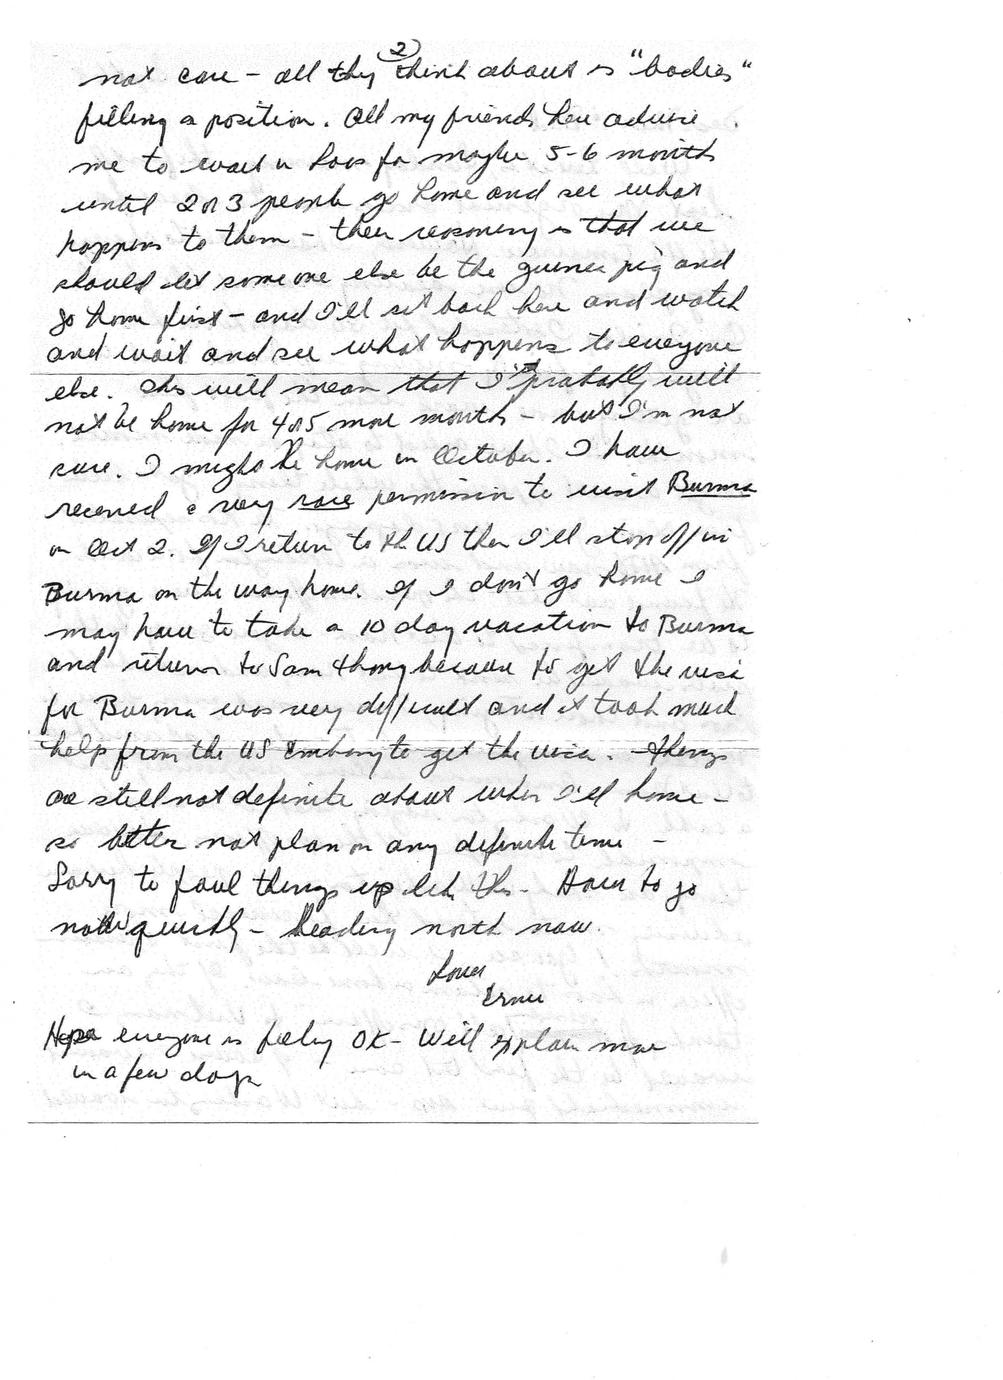 2
not care - all they think about is "bodies"
filling a position. All my friends here advise
me to wait in Laos for maybe 5-6 months
until 2 or 3 people go home and see what
happens to them - their reasoning is that we
should let someone else be the guinea pig and
go home first - and I'll sit back here and watch
and wait and see what happens to everyone
else. This will mean that I probably will
not be home for 4 or 5 more months - but I'm not
sure. I might be home in October. I have
received a very rare permission to visit Burma
on Oct 2. If I return to the US then I'll stop off in
Burma on the way home. If I don't go home I
may have to take a 10 day vacation to Burma
and return to Sam Thong because to get the visa
for Burma was very difficult and it took much
help from the US Embassy to get the visa. Things
are still not definite about when I'll home -
so better not plan on any definite time -
Sorry to foul things up like this - Have to go
now quickly - heading north now.
Love
Ernie
Hope everyone is feeling OK - Will explain more
in a few days